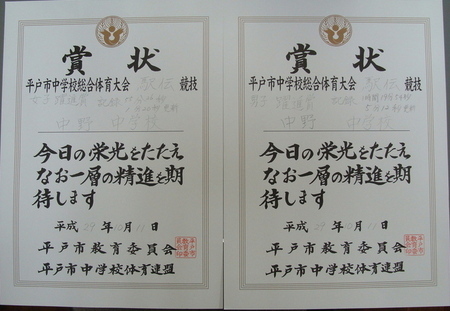 賞状
平戸市中学校総合体育大会 駅伝 競技
女子 躍進賞 記録
中野 中学校
今日の栄光をたたえ
なお一層の精進を期
待します
平成 29 年 10月 11 日
平戸市教育委員会
平戸市中学校体育連盟
賞状
平戸市中学校総合体育大会 駅伝 競技
男子 躍進賞 記録
中野 中学校
今日の栄光をたたえ
なお一層の精進を期
待します
平成 29 年 10月 11 日
平戸市教育委員会
平戸市中学校体育連盟